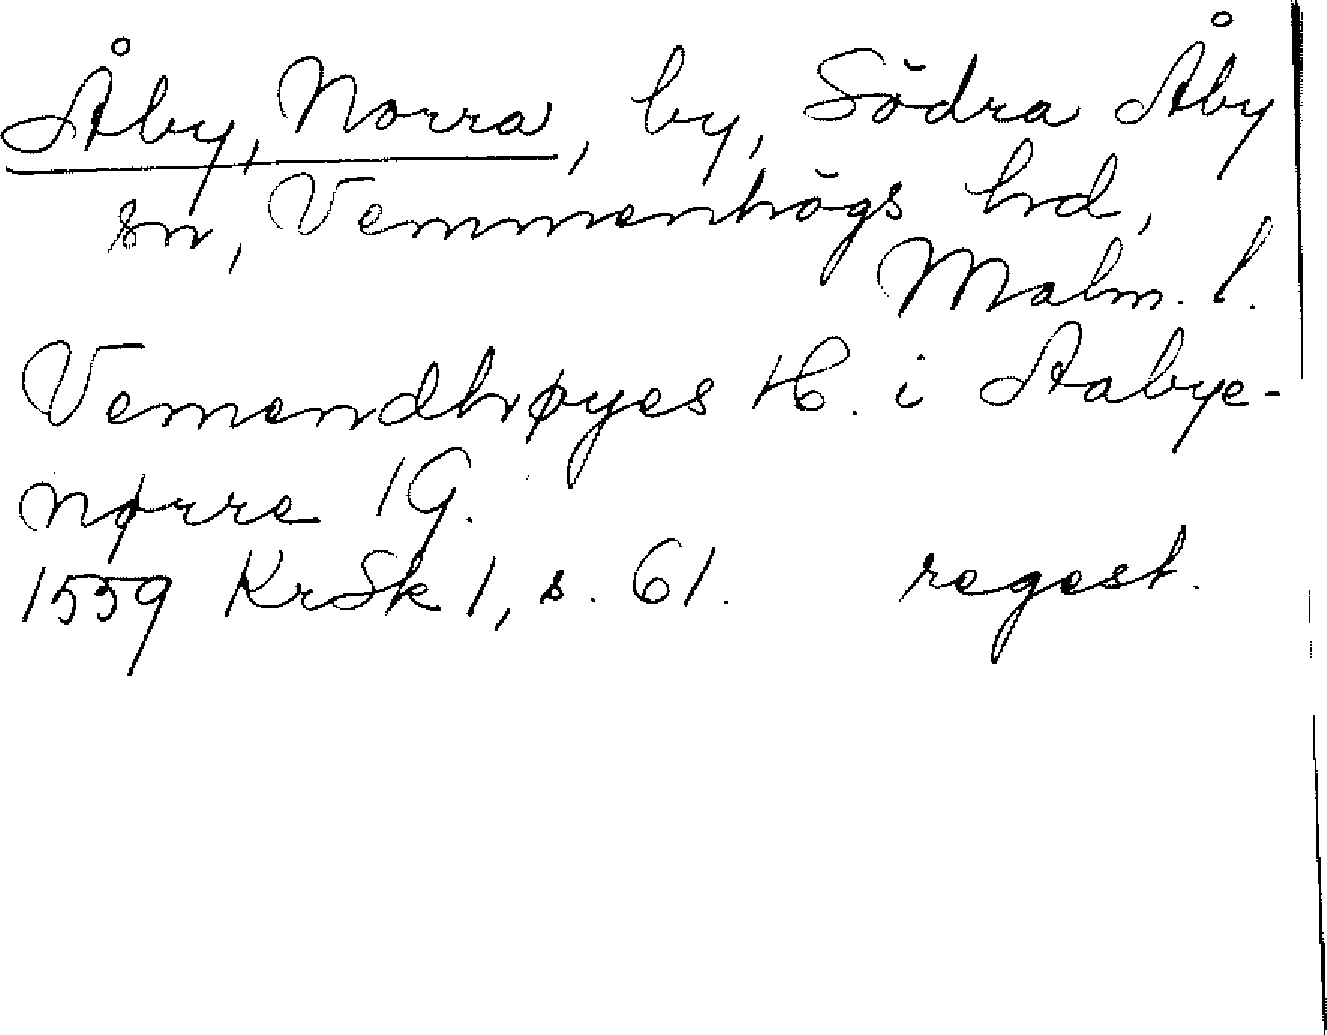 Åby, Norra, by, Södra Åby
sn, Vemmenhögs hd,
Malm. l.
Vemendhøyes H. i Aabye-
nørre 1 G.
1559 KrSk 1, s. 61. regest.